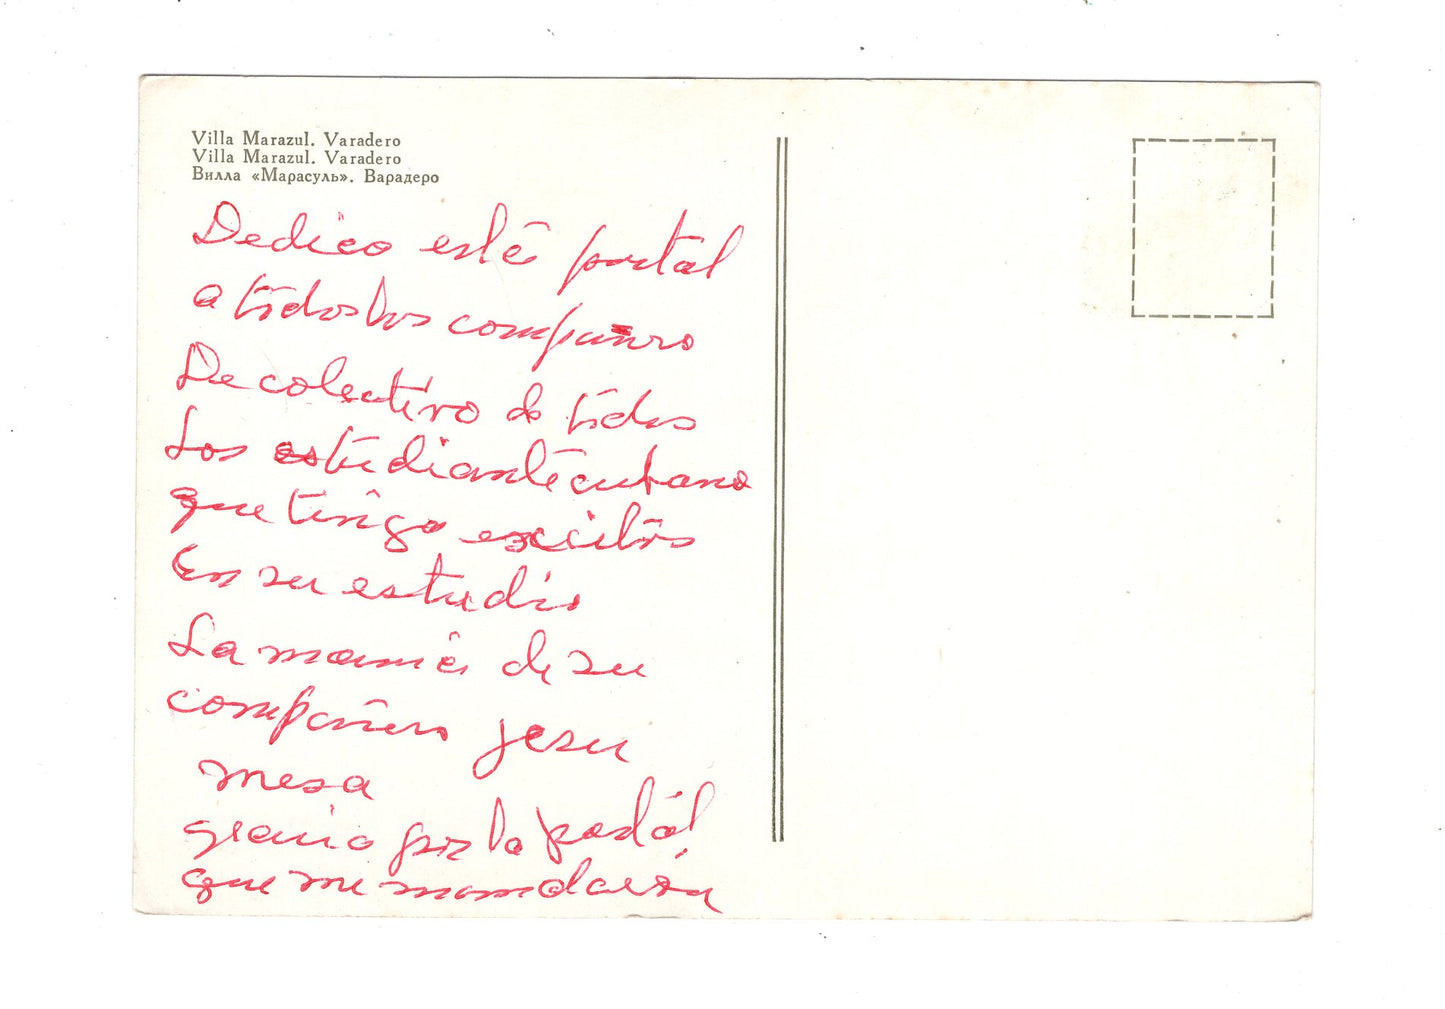 Villa Marazul. Varadero
Villa Marazul. Varadero
Вилла «Марасуль». Варадеро
Dedico esté postal
a todos los compañro
De colectivo de todos
Los estudiante cubano
que tengo excitos
En su estudio
La mamá de su
compañero jesu
mesa
gracia por la postál
que me mandaron